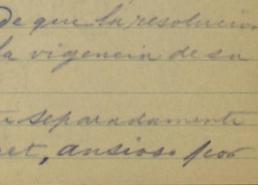 de que la resolución
la vigencia de su
separadamente
et, ansioso por